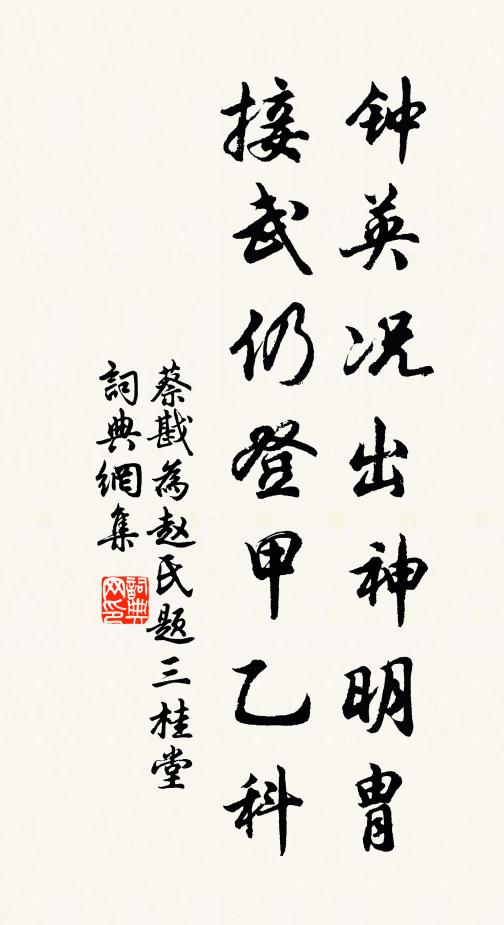 钟英况出神明胄
接武仍登甲乙科
蔡戡為赵氏题三桂堂
詞典網集
詞典网印